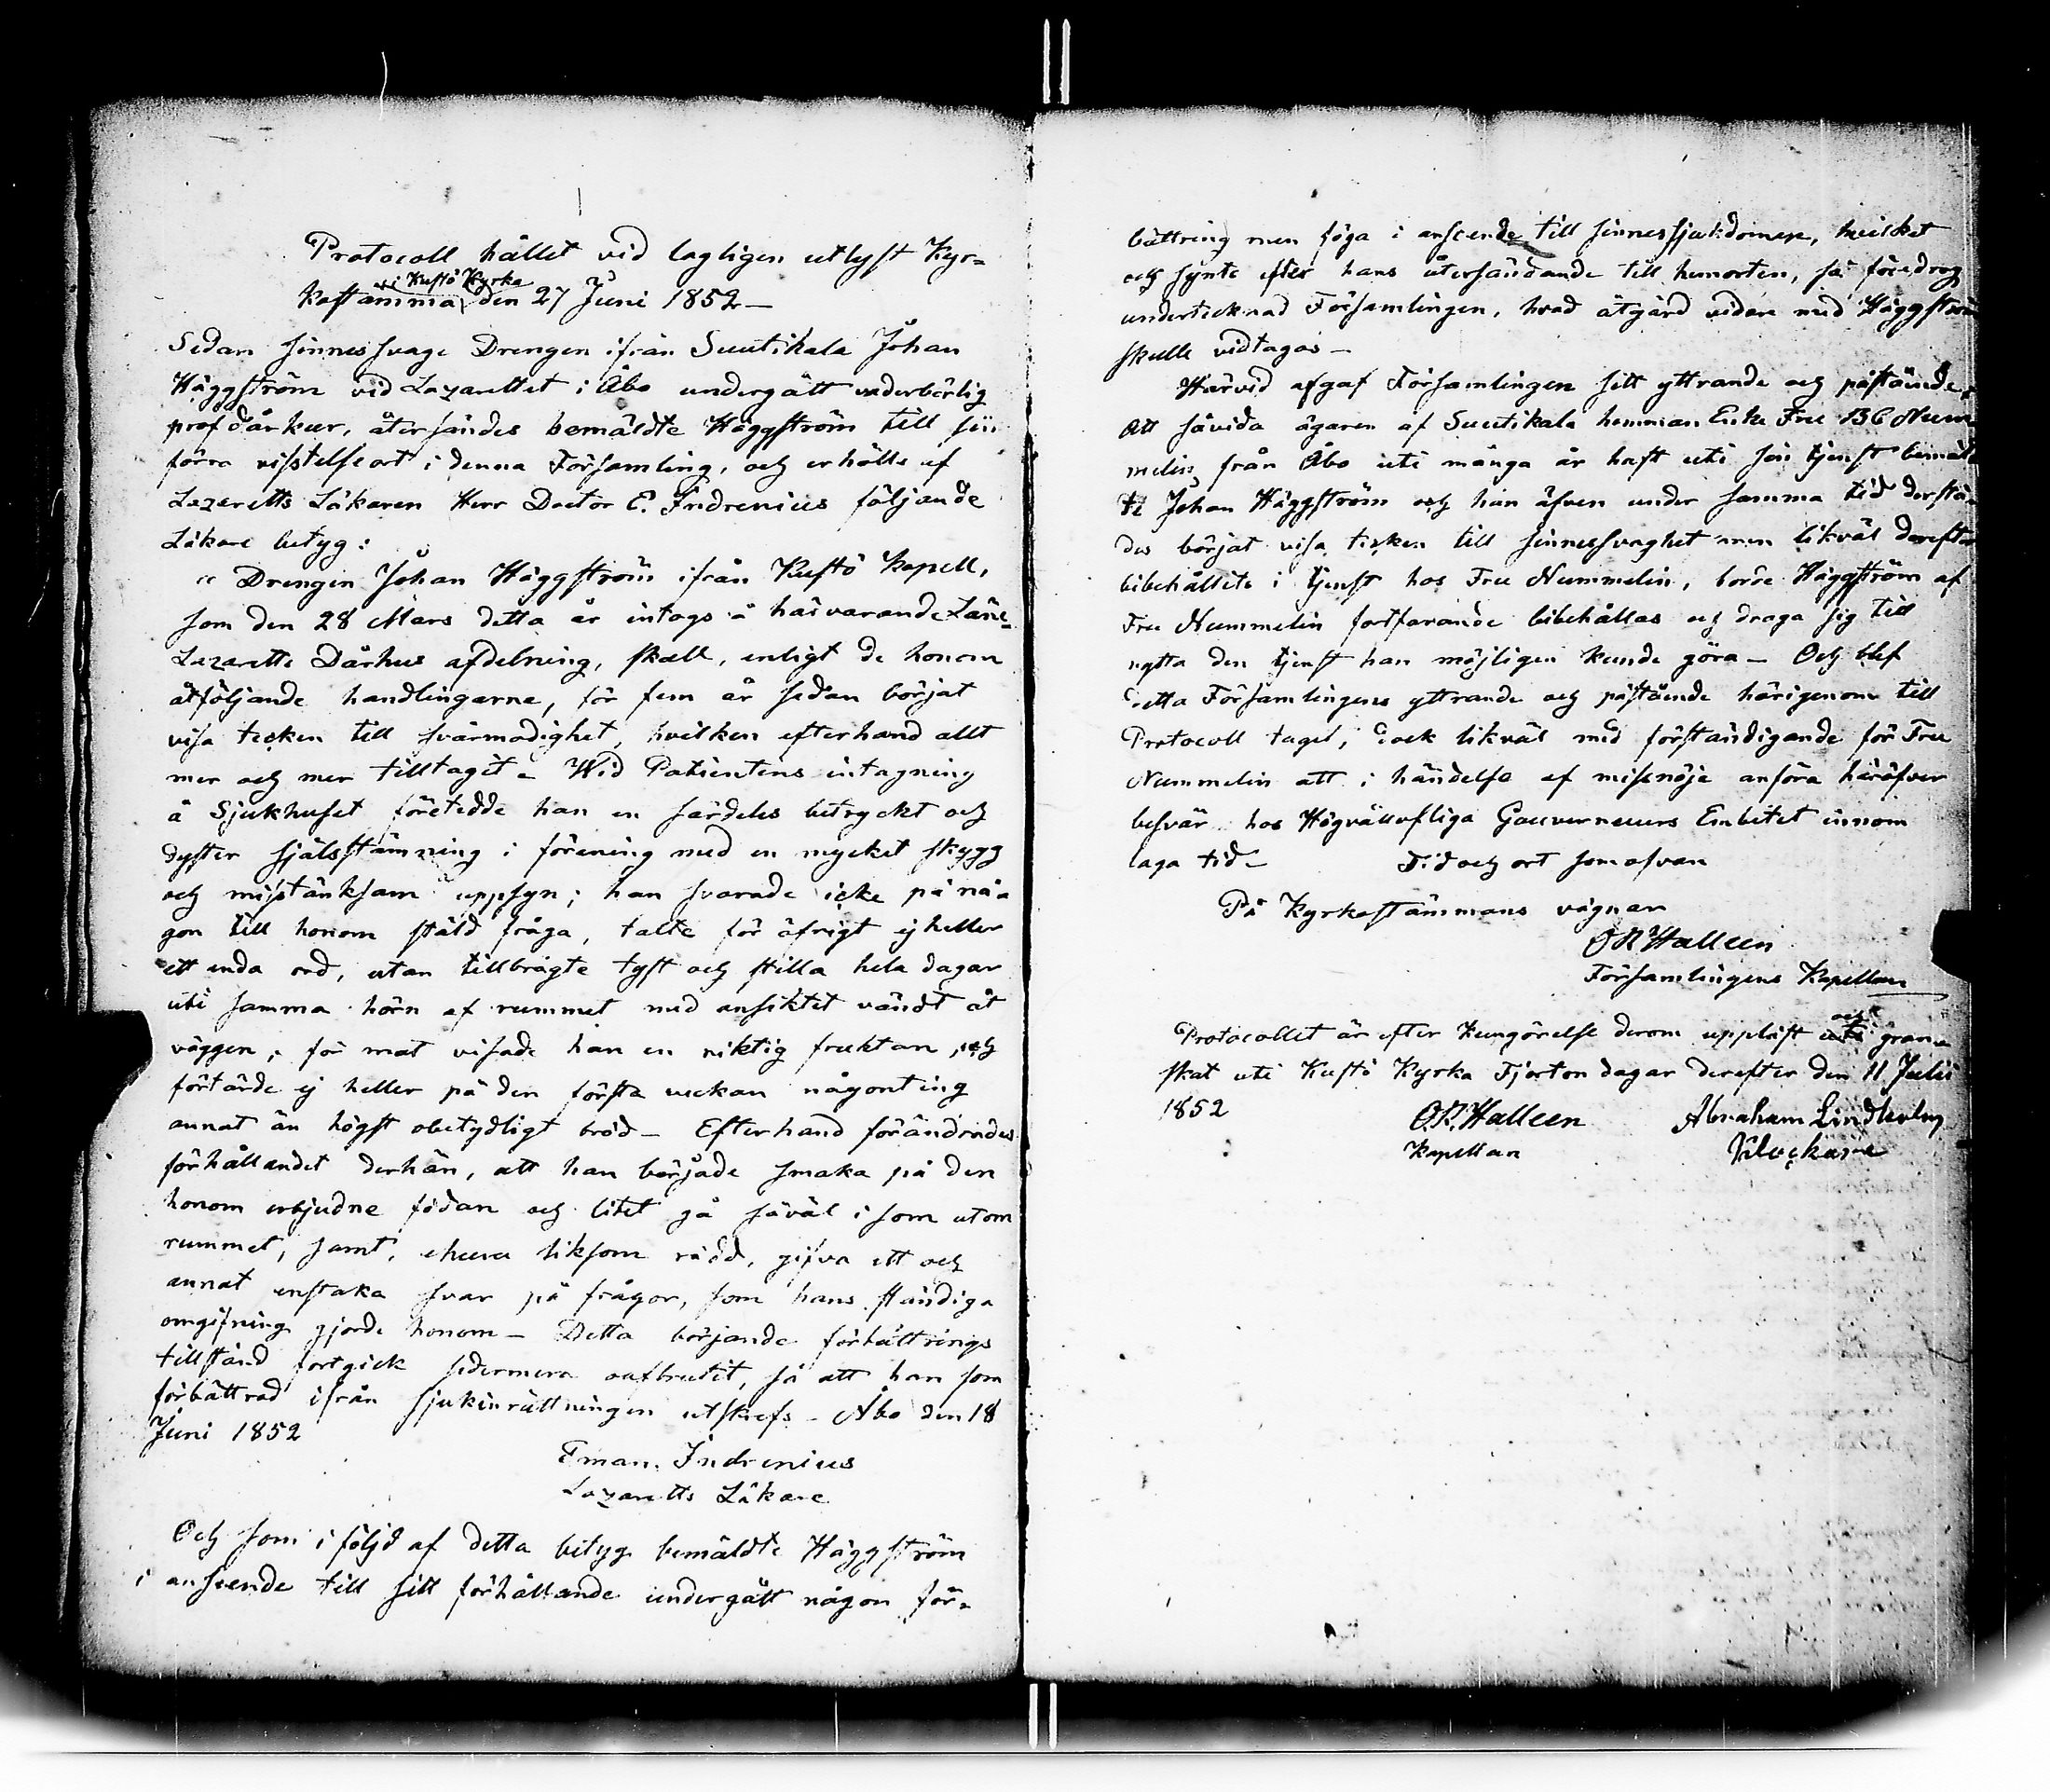 Protocoll hållet vid lagligen utlyst Kyr=
i Kustö Kyrka
kostämma den 27 Juni 1852 —
Sedan sinnessvage Drengen ifrån Suutikala Johan
Häggström vid Lazarettet i Åbo undergått vederbörlig
prof dårkur, återsändes bemäldte Häggström till sin
förra vistelseort i denna Församling, och erhölls af
Lazaretts Läkaren Herr Doctor E. Indrenius följande
Läkare betyg:
"Drengen Johan Häggström ifrån Kustö Kapell,
som den 28 Mars detta år intogs å härvarande Läns=
Lazaretts Dårhus afdelning, skall, enligt de honom
åtföljande handlingarne, för fem år sedan börjat
visa tecken till svårmodighet, hvilken efterhand allt
mer och mer tilltagit. Wid Patientens intagning
å Sjukhuset företedde han en särdeles betryckt och
dyster själsstämning i förening med en mycket skygg
och misstänksam uppsyn; han svarade icke på nå=
gon till honom stäld fråga, talte för öfrigt ej heller
ett enda ord, utan tillbragte tyst och stilla hela dagar
uti samma hörn af rummet med ansiktet vändt åt
väggen; för mat visade han en riktig fruktan, och
förtärde ej heller på den första veckan någonting
annat än högst obetydligt bröd — Efterhand förändrades
förhållandet derhän, att han började smaka på den
honom erbjudne födan och litet gå såväl i som utom
rummet, samt, ehuru liksom rädd, gifva ett och
annat enstaka svar på frågor, som hans ständiga
omgifning gjorde honom — Detta började förbättrings
tillstånd fortgick sedermera oafbrutit, så att han som
förbättrad ifrån sjukinrättningen utskrefs — Åbo den 18
Juni 1852
Eman. Indrenius
Lazaretts Läkare
Och som i följd af detta betyg bemäldte Häggström
i anseende till sitt förhållande undergått någon för=
bättring men föga i anseende till sinnessjukdomen, hvilket
och synts efter hans återsändande till hemorten, så föredrog
undertecknad Församlingen, hvad åtgärd vidare med Häggström
skulle vidtagas —
Härvid afgaf Församlingen sitt yttrande och påstående,
att såvida ägaren af Suutikala hemman Enke Fru Num
melin från Åbo uti många år haft uti sin tjenst bemäld
te Johan Häggström och han äfven under samma tid derstä=
des börjat visa tecken till sinnessvaghet men likväl derefter
bibehållits i tjenst hos Fru Nummelin, borde Häggström af
Fru Nummelin fortfarande bibehållas och draga sig till
nytta den tjenst han möjligen kunde göra — Och blef
detta Församlingens yttrande och påstående härigenom till
Protocoll taget, dock likväl med förständigande för Fru
Nummelin att i händelse af missnöje anföra häröfver
besvär hos Högvällofliga Gouverneurs Embetet innom
laga tid — Tid och ort som ofvan
På Kyrkostämmans vägnar
O R Halleen
Församlingens Kapellan
och
Protocollet är efter kungörelse derom uppläst uti gran=
skat uti Kustö Kyrka Fjorton dagar derefter den 11 Julii
1852 O.R. Halleen Abraham Lindholm
Kapellan Klockare